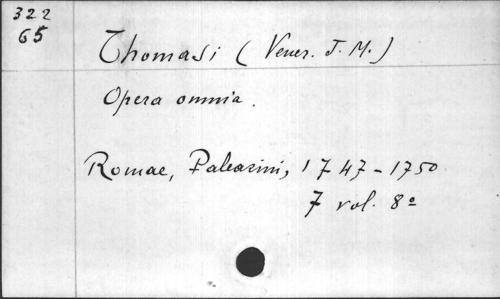 322
65
Thomasi (Vener. J. M.)
Opera omnia.
Romae, Palearini, 1747-1750
7 vol. 8º